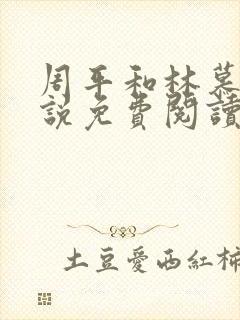 周平和林慕
說免費閱讀
土豆愛西紅柿